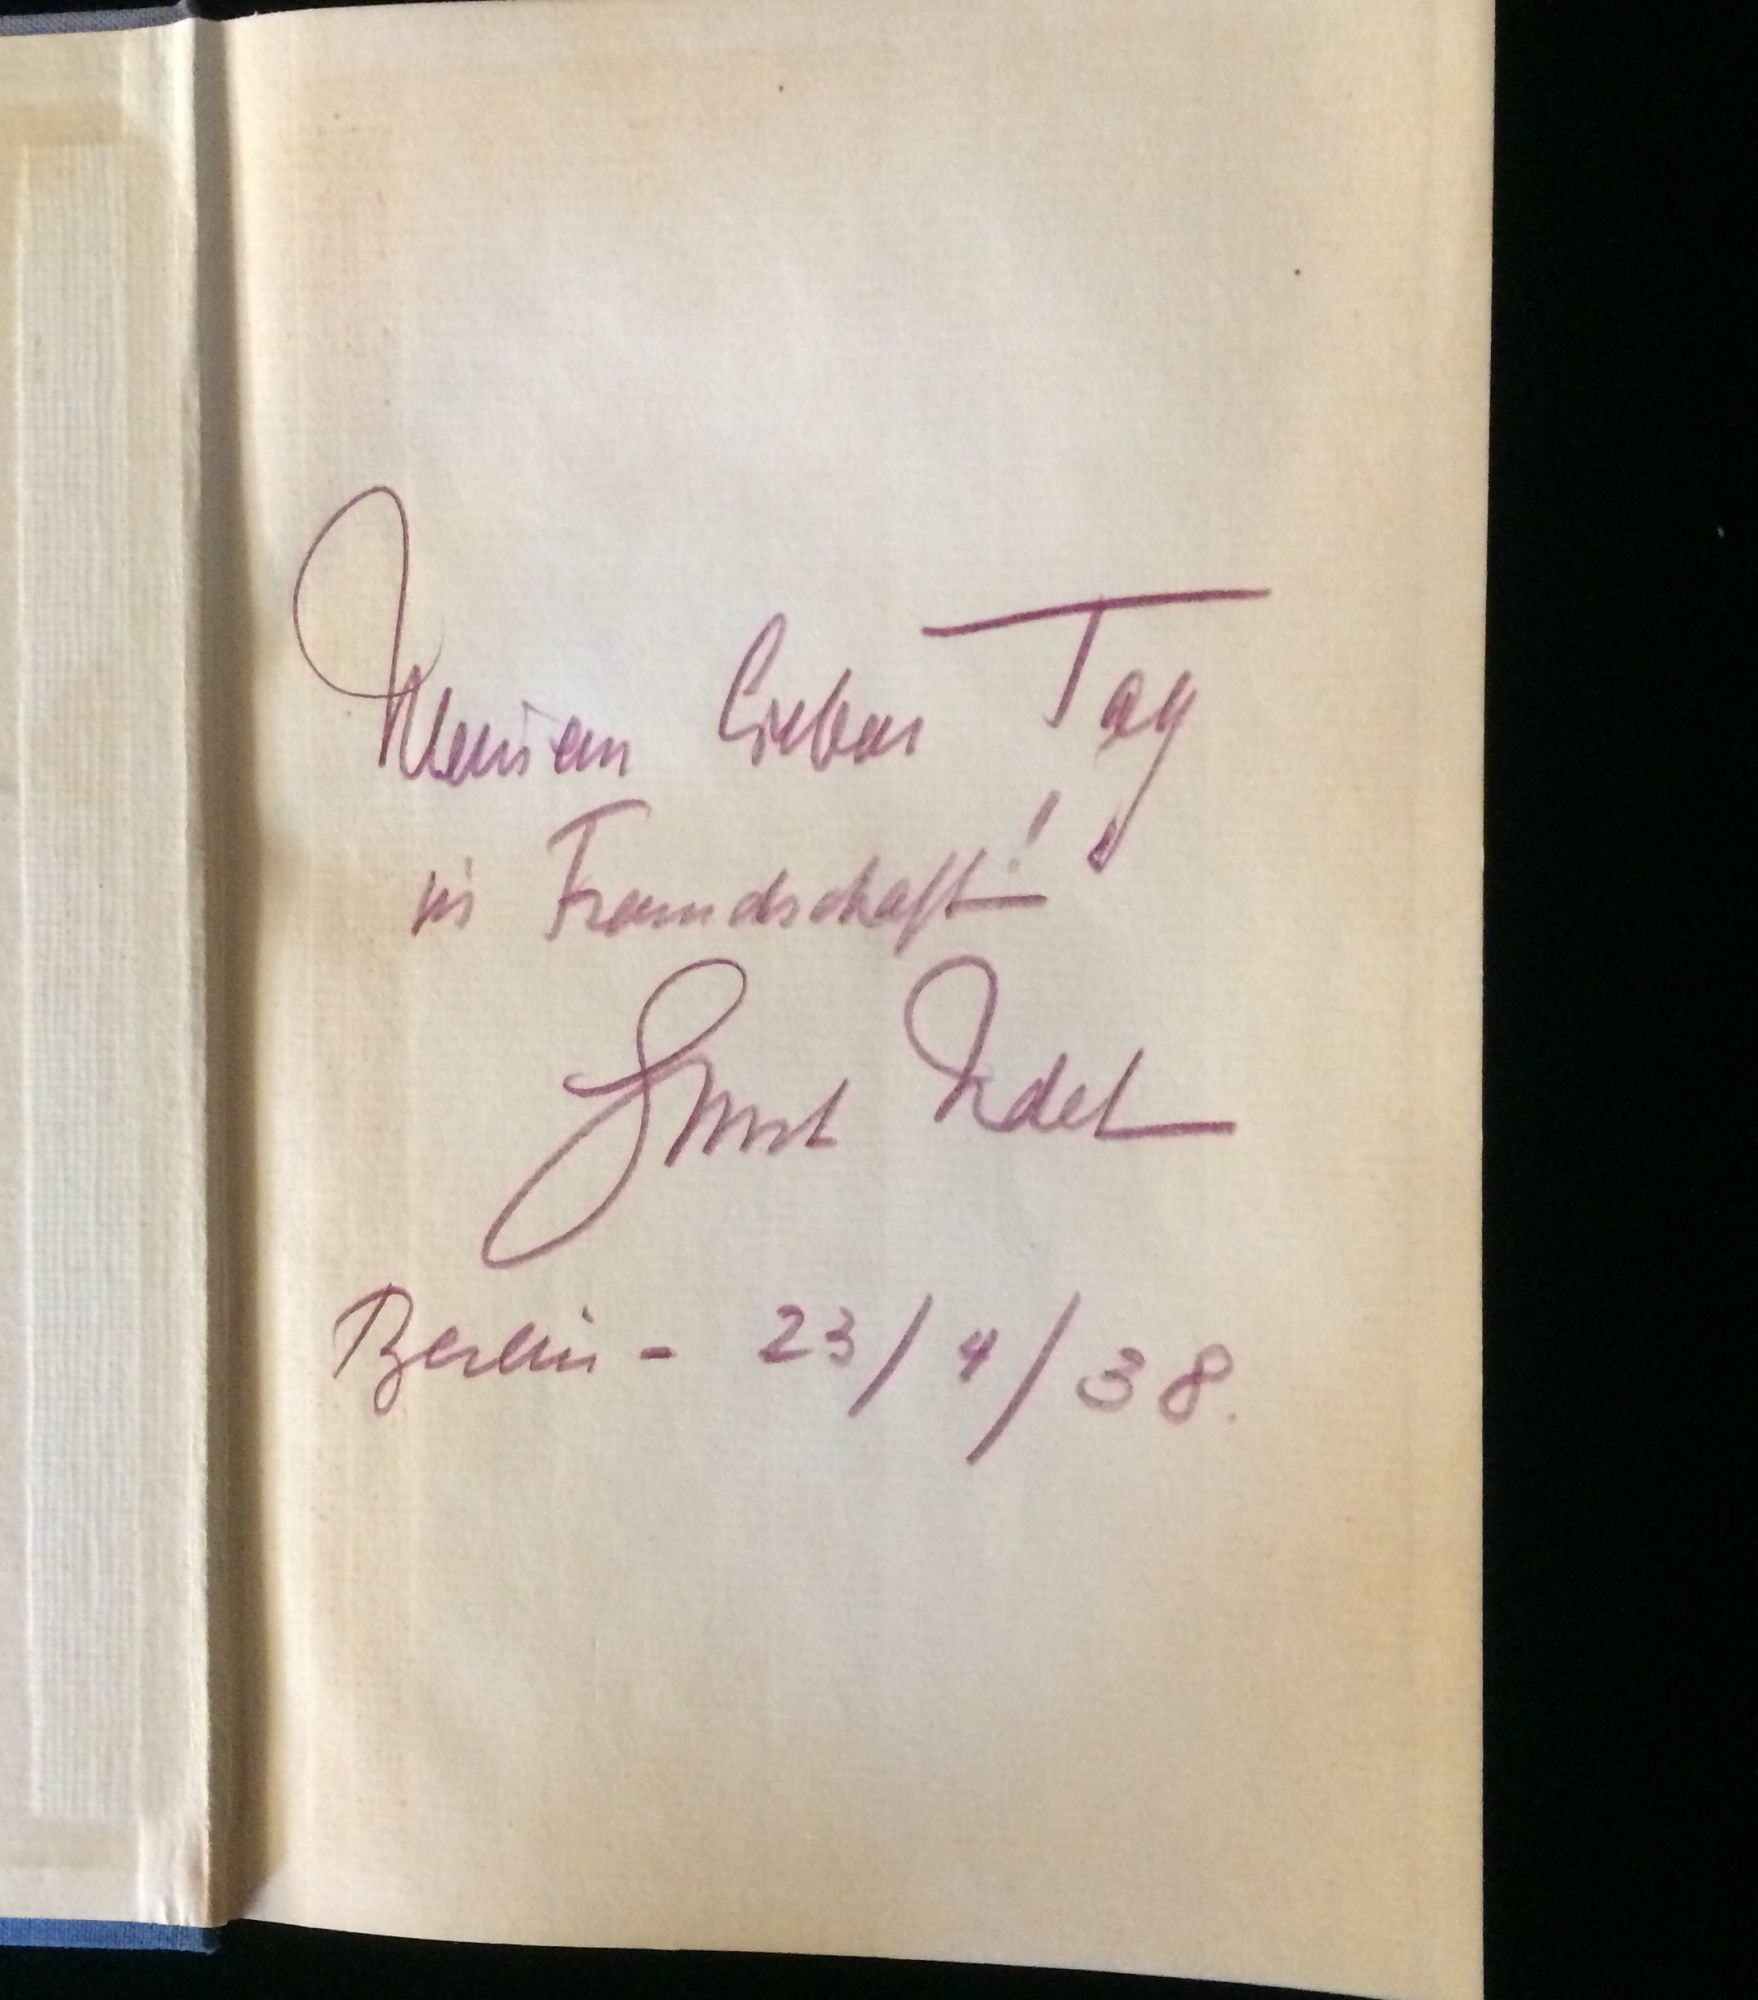 Meinem lieben Tag
in Freundschaft!
Ernst Udet
Berlin - 23/4/38.